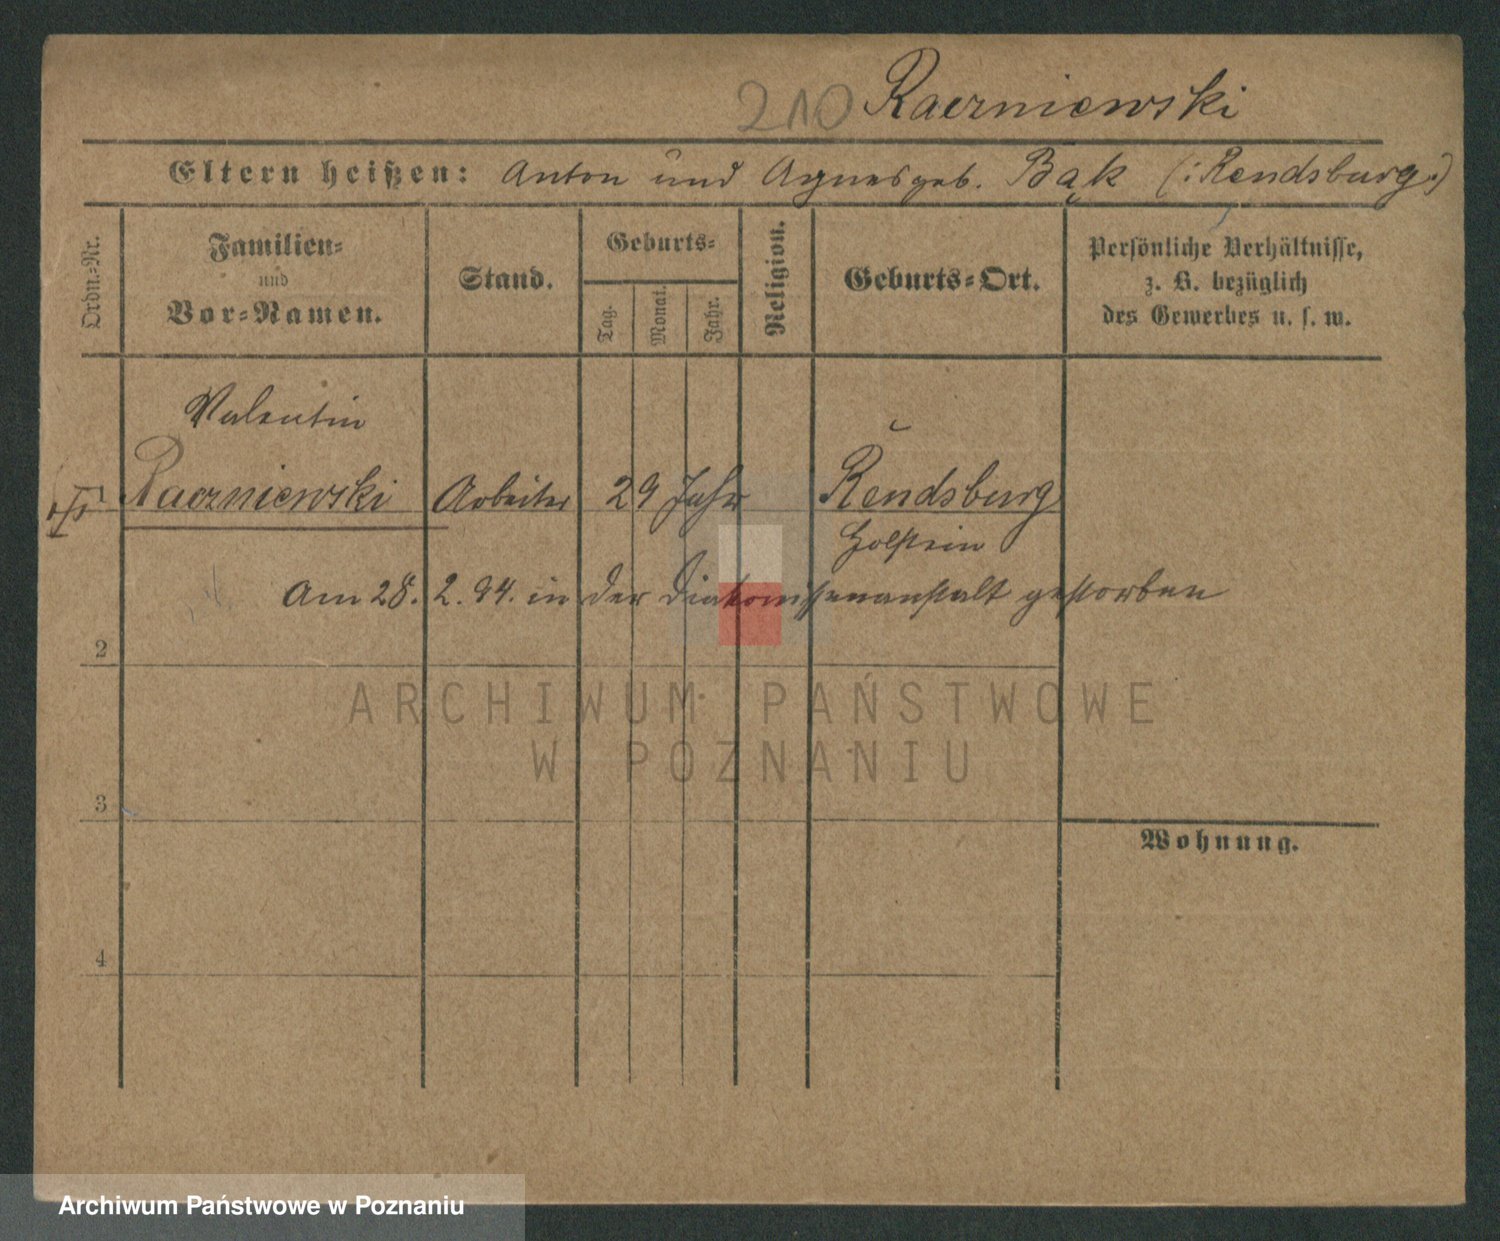 210 Raczniewski
Eltern heißen: Anton und Agnes geb. Bąk (: Rendsburg :)
Ordn.=Nr.
Familien=
und
Vor=Namen.
Stand.
Geburts=
Tag.
Monat.
Jahr.
Religion.
Geburts=Ort.
Persönliche Verhältnisse,
z. B. bezüglich
des Gewerbes u. s. w.
Valentin
1 Raczniewski Arbeiter 29 Jahr Rendsburg
Holstein
Am 28. 2. 94. in der Diakonissenanstalt gestorben
2
3
Wohnung.
4
ARCHIWUM PAŃSTWOWE
W POZNANIU
Archiwum Państwowe w Poznaniu